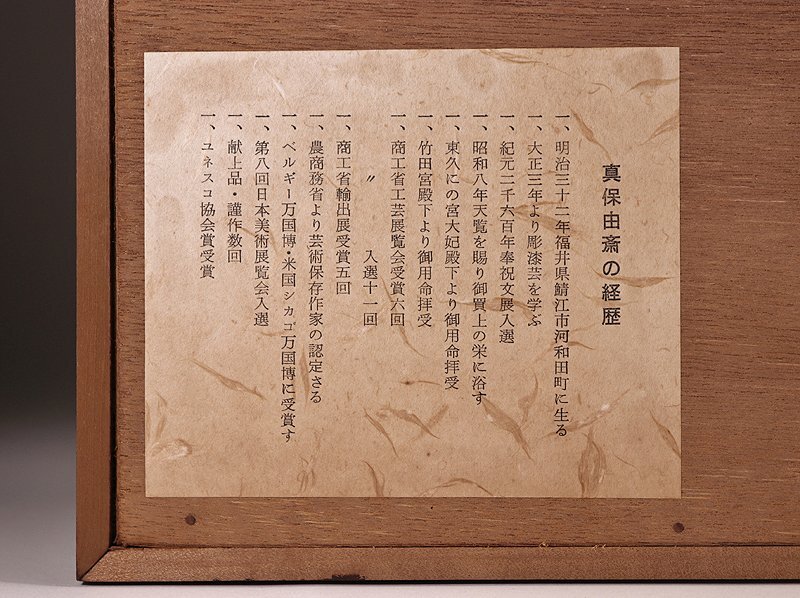 真保由斎の経歴
一、明治三十二年福井県鯖江市河和田町に生る
一、大正三年より彫漆芸を学ぶ
一、紀元二千六百年奉祝文展入選
一、昭和八年天覧を賜り御買上の栄に浴す
一、東久にの宮大妃殿下より御用命拝受
一、竹田宮殿下より御用命拝受
一、商工省工芸展覧会受賞六回
〃 入選十一回
一、商工省輸出展受賞五回
一、農商務省より芸術保存作家の認定さる
一、ベルギー万国博・米国シカゴ万国博に受賞す
一、第八回日本美術展覧会入選
一、献上品・謹作数回
一、ユネスコ協会賞受賞